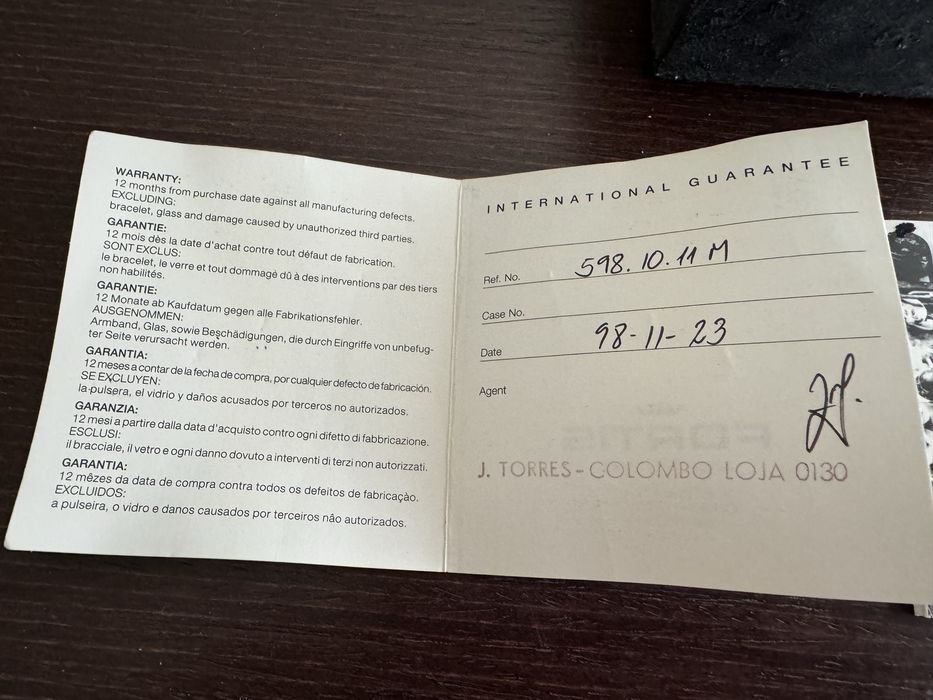 WARRANTY:
12 months from purchase date against all manufacturing defects.
EXCLUDING:
bracelet, glass and damage caused by unauthorized third parties.
GARANTIE:
12 mois dès la date d'achat contre tout défaut de fabrication.
SONT EXCLUS:
le bracelet, le verre et tout dommage dû à des interventions par des tiers
non habilités.
GARANTIE:
12 Monate ab Kaufdatum gegen alle Fabrikationsfehler.
AUSGENOMMEN:
Armband, Glas, sowie Beschädigungen, die durch Eingriffe von unbefug-
ter Seite verursacht werden.
GARANTIA:
12 meses a contar de la fecha de compra, por cualquier defecto de fabricación.
SE EXCLUYEN:
la pulsera, el vidrio y daños acusados por terceros no autorizados.
GARANZIA:
12 mesi a partire dalla data d'acquisto contro ogni difetto di fabbricazione.
ESCLUSI:
il bracciale, il vetro e ogni danno dovuto a interventi di terzi non autorizzati.
GARANTIA:
12 mêzes da data de compra contra todos os defeitos de fabricaçào.
EXCLUIDOS:
a pulseira, o vidro e danos causados por terceiros nâo autorizados.
INTERNATIONAL GUARANTEE
Ref. No. 598.10.11 M
Case No.
Date 98-11-23
Agent
FORTIS
J. TORRES - COLOMBO LOJA 0130